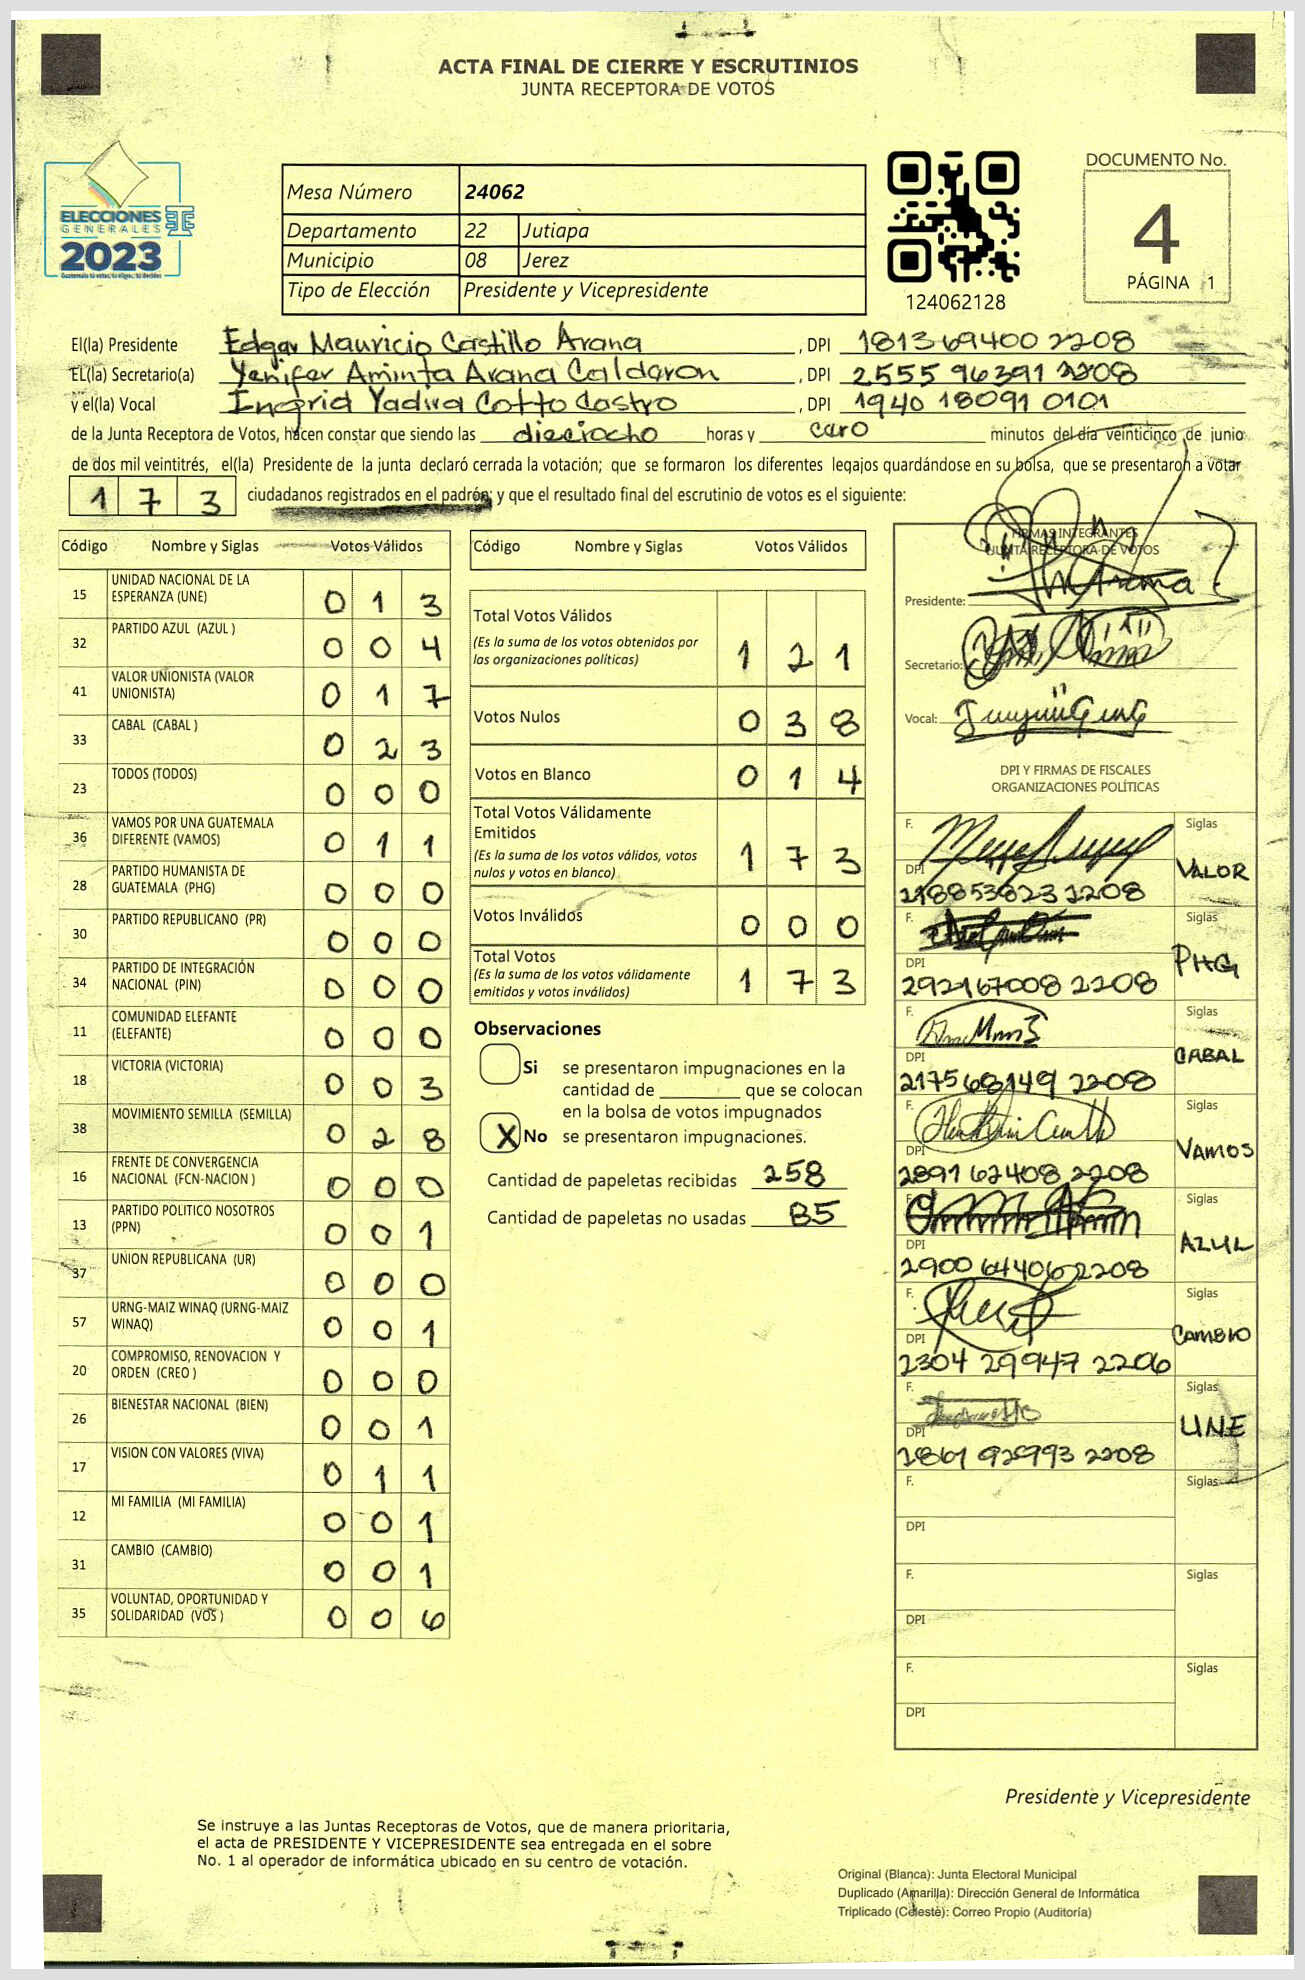 ACTA FINAL DE CIERRE Y ESCRUTINIOS
JUNTA RECEPTORA DE VOTOS
ELECCIONES
GENERALES
2023
Mesa Número 24062
Departamento 22 Jutiapa
Municipio 08 Jerez
Tipo de Elección Presidente y Vicepresidente
124062128
DOCUMENTO No.
4
PÁGINA 1
El(la) Presidente Edgar Mauricio Castillo Arana, DPI 1813 69400 2208
EL(la) Secretario(a) Yenifer Aminta Arana Calderon, DPI 2555 96391 2208
y el(la) Vocal Ingrid Yadira Cotto Castro, DPI 1940 18091 0101
de la Junta Receptora de Votos, hacen constar que siendo las dieciocho horas y cero minutos del día veinticinco de junio
de dos mil veintitrés, el(la) Presidente de la junta declaró cerrada la votación; que se formaron los diferentes legajos guardándose en su bolsa, que se presentaron a votar
1 7 3 ciudadanos registrados en el padrón; y que el resultado final del escrutinio de votos es el siguiente:
Código Nombre y Siglas Votos Válidos
15 UNIDAD NACIONAL DE LA ESPERANZA (UNE) 0 1 3
32 PARTIDO AZUL (AZUL ) 0 0 4
41 VALOR UNIONISTA (VALOR UNIONISTA) 0 1 7
33 CABAL (CABAL ) 0 2 3
23 TODOS (TODOS) 0 0 0
36 VAMOS POR UNA GUATEMALA DIFERENTE (VAMOS) 0 1 1
28 PARTIDO HUMANISTA DE GUATEMALA (PHG) 0 0 0
30 PARTIDO REPUBLICANO (PR) 0 0 0
34 PARTIDO DE INTEGRACIÓN NACIONAL (PIN) 0 0 0
11 COMUNIDAD ELEFANTE (ELEFANTE) 0 0 0
18 VICTORIA (VICTORIA) 0 0 3
38 MOVIMIENTO SEMILLA (SEMILLA) 0 2 8
16 FRENTE DE CONVERGENCIA NACIONAL (FCN-NACION ) 0 0 0
13 PARTIDO POLITICO NOSOTROS (PPN) 0 0 1
37 UNION REPUBLICANA (UR) 0 0 0
57 URNG-MAIZ WINAQ (URNG-MAIZ WINAQ) 0 0 1
20 COMPROMISO, RENOVACION Y ORDEN (CREO ) 0 0 0
26 BIENESTAR NACIONAL (BIEN) 0 0 1
17 VISION CON VALORES (VIVA) 0 1 1
12 MI FAMILIA (MI FAMILIA) 0 0 1
31 CAMBIO (CAMBIO) 0 0 1
35 VOLUNTAD, OPORTUNIDAD Y SOLIDARIDAD (VOS ) 0 0 6
Código Nombre y Siglas Votos Válidos
Total Votos Válidos
(Es la suma de los votos obtenidos por
las organizaciones políticas) 1 2 1
Votos Nulos 0 3 8
Votos en Blanco 0 1 4
Total Votos Válidamente
Emitidos
(Es la suma de los votos válidos, votos
nulos y votos en blanco) 1 7 3
Votos Inválidos 0 0 0
Total Votos
(Es la suma de los votos válidamente
emitidos y votos inválidos) 1 7 3
Observaciones
Si se presentaron impugnaciones en la
cantidad de ____ que se colocan
en la bolsa de votos impugnados
X No se presentaron impugnaciones.
Cantidad de papeletas recibidas 258
Cantidad de papeletas no usadas 85
FIRMAS INTEGRANTES
JUNTA RECEPTORA DE VOTOS
Presidente:
Secretario:
Vocal:
DPI Y FIRMAS DE FISCALES
ORGANIZACIONES POLÍTICAS
F. Siglas
DPI VALOR
F. Siglas
DPI PHG
292167008 2208
F. Siglas
DPI CABAL
217568149 2208
F. Siglas
DPI VAMOS
2891 62408 2208
F. Siglas
DPI AZUL
2900 64406 2208
F. Siglas
DPI CAMBIO
2304 29947 2206
F. Siglas
DPI UNE
1861 92993 2208
F. Siglas
DPI
F. Siglas
DPI
F. Siglas
DPI
Presidente y Vicepresidente
Se instruye a las Juntas Receptoras de Votos, que de manera prioritaria,
el acta de PRESIDENTE Y VICEPRESIDENTE sea entregada en el sobre
No. 1 al operador de informática ubicado en su centro de votación.
Original (Blanca): Junta Electoral Municipal
Duplicado (Amarilla): Dirección General de Informática
Triplicado (Celeste): Correo Propio (Auditoría)